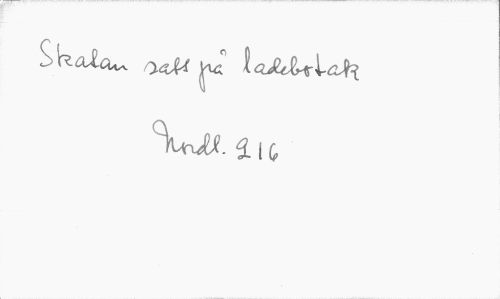 Skatan satt på ladebotak
Nordl. 216